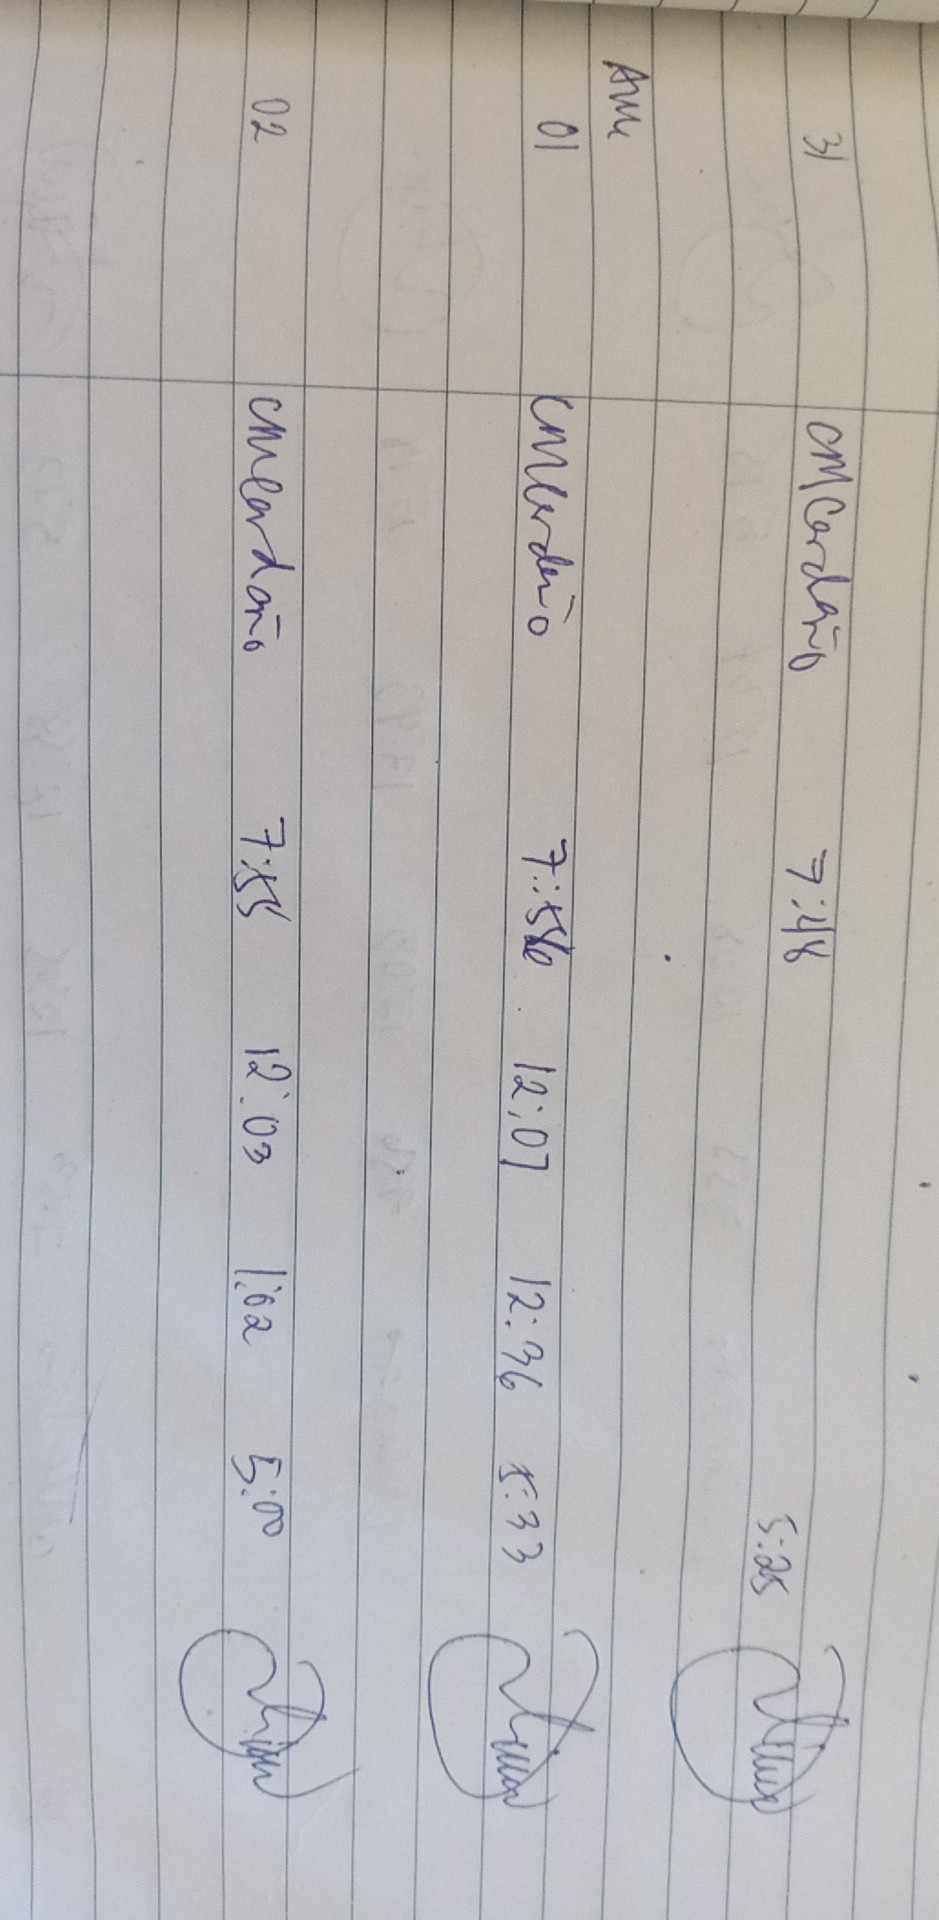 31 CMCardaño 7:48 5:25
01 CMCardaño 7:56 12:07 12:36 5:33
02 CMCardaño 7:55 12:03 1:02 5:00